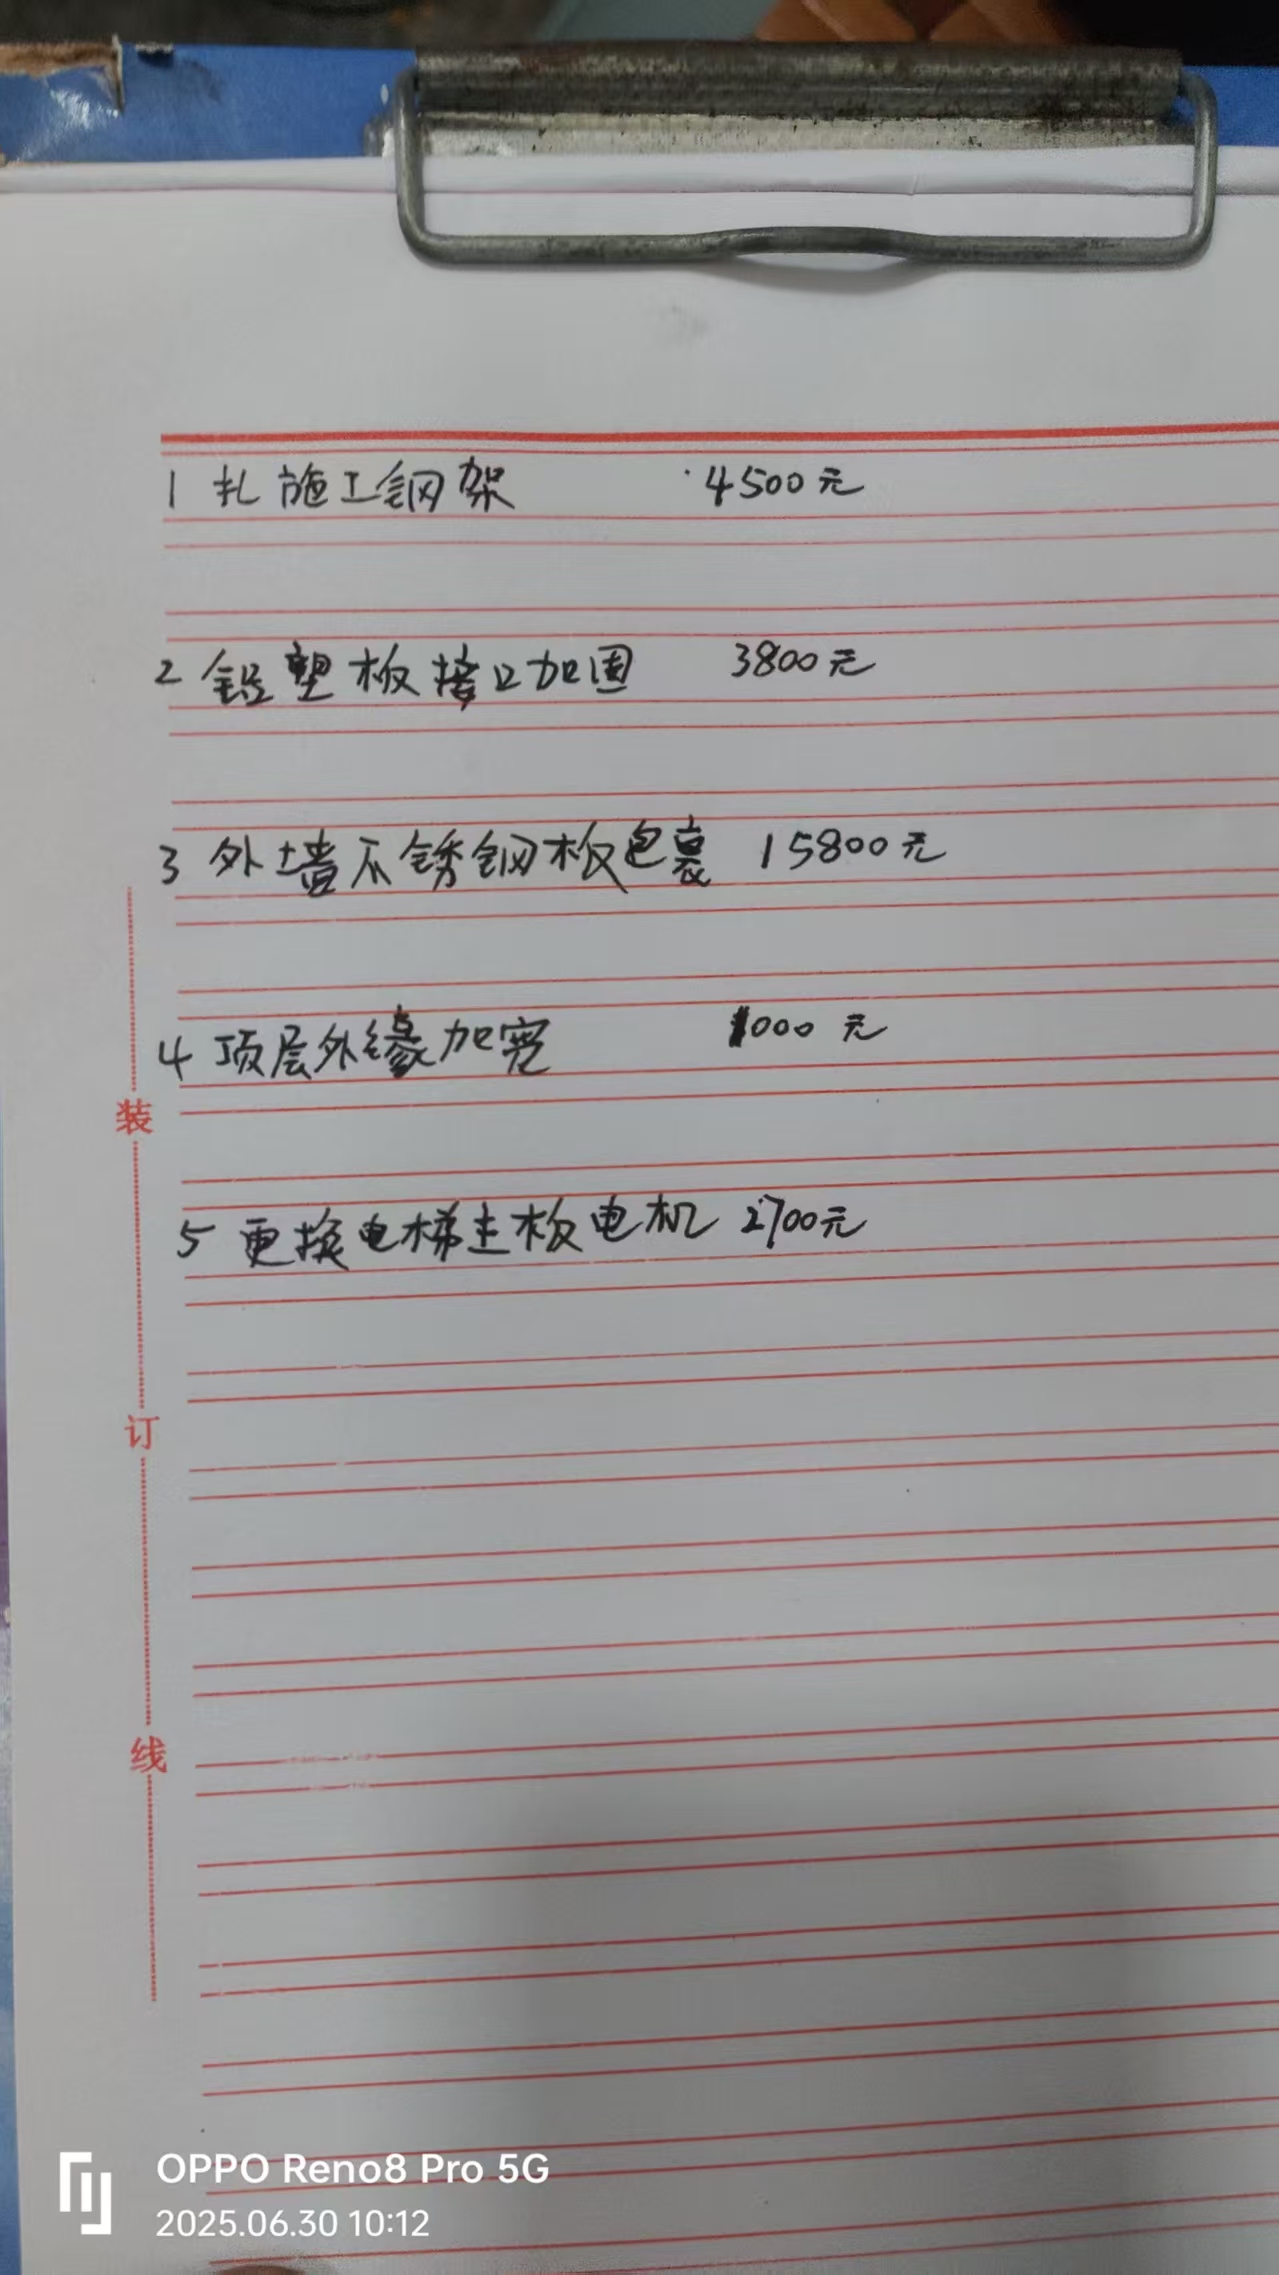 1 扎施工钢架 4500元
2 铝塑板接口加固 3800元
3 外墙不锈钢板包裹 15800元
4 顶层外缘加宽 1000元
5 更换电梯主板电机 2700元
装
订
线
OPPO Reno8 Pro 5G
2025.06.30 10:12